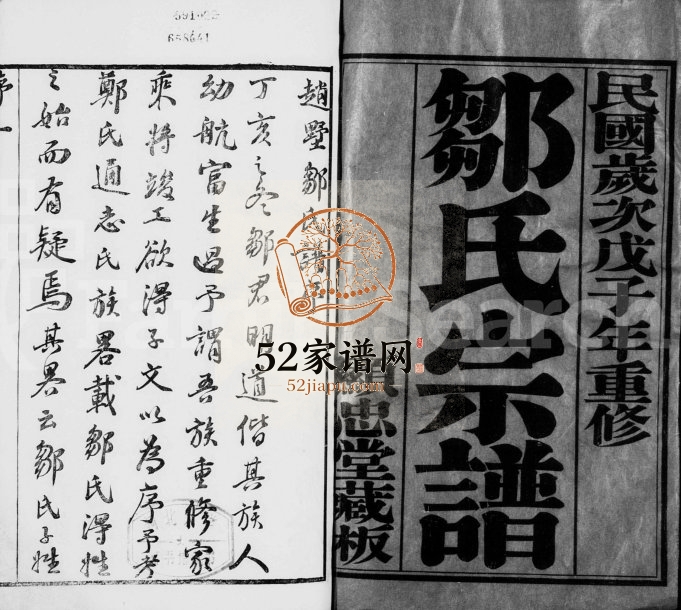 民國歲次戊子年重修
鄒氏宗譜
忠堂藏板
趙墅鄒氏譜序
丁亥之冬鄒君明道偕其族人
幼航富生過予謂吾族重修家
乘將竣工欲得予文以為序予考
鄭氏通志氏族畧載鄒氏得姓
之始而有疑焉其畧云鄒氏子姓
序一
52家谱网
52jiapu.com